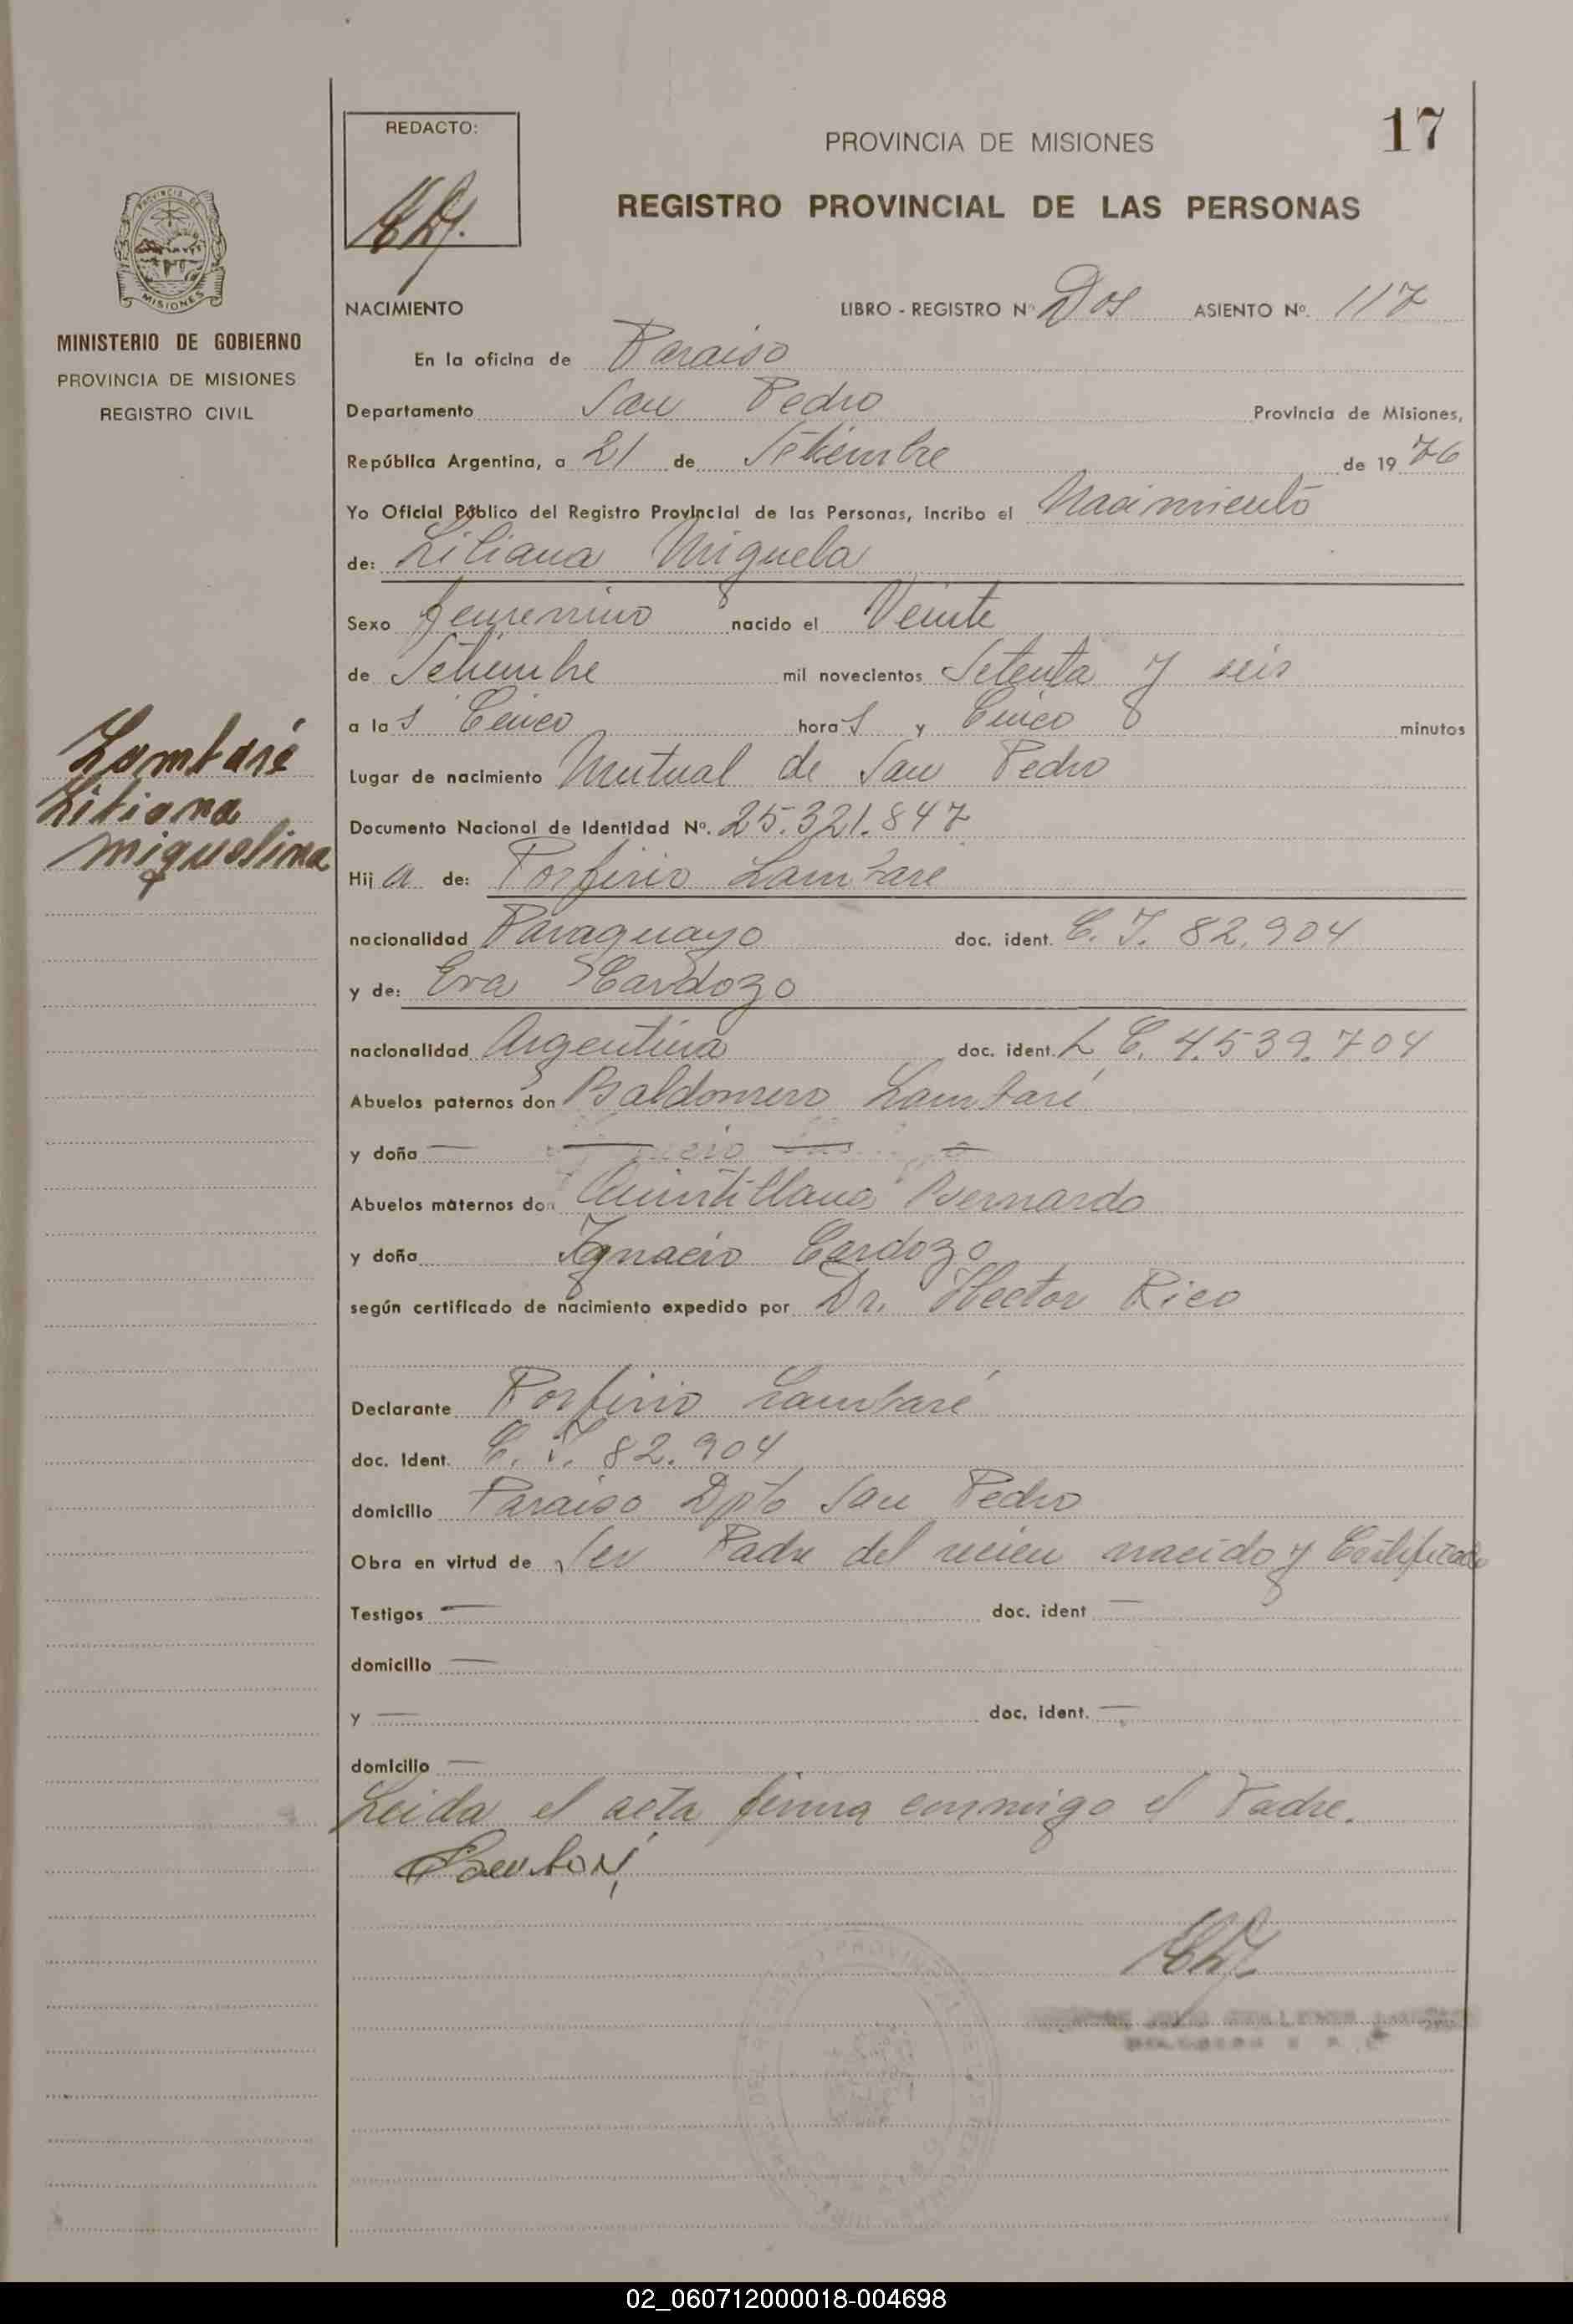 17
REDACTO:
PROVINCIA DE MISIONES
REGISTRO PROVINCIAL DE LAS PERSONAS
PROVINCIA DE
MISIONES
MINISTERIO DE GOBIERNO
PROVINCIA DE MISIONES
REGISTRO CIVIL
NACIMIENTO LIBRO - REGISTRO Nº Dos ASIENTO Nº. 117
En la oficina de Paraiso
Departamento San Pedro Provincia de Misiones,
República Argentina, a 21 de Setiembre de 19 76
Yo Oficial Público del Registro Provincial de las Personas, incribo el Nacimiento
de: Liliana Miguela
Sexo femenino nacido el Veinte
de Setiembre mil novecientos Setenta y seis
a las Cinco horas y Cinco minutos
Lugar de nacimiento Mutual de San Pedro
Documento Nacional de Identidad Nº. 25.321.847
Lambaré
Liliana
Miguelina
Hija de: Porfirio Lambare
nacionalidad Paraguayo doc. ident. C. I. 82.904
y de: Eva Cardozo
nacionalidad Argentina doc. ident. L C. 4.539.704
Abuelos paternos don Baldomero Lambaré
y doña —
Abuelos maternos don Quintillana Bernardo
y doña Ignacio Cardozo
según certificado de nacimiento expedido por Dr. Hector Rico
Declarante Porfirio Lambaré
doc. Ident. C. I. 82.904
domicilio Paraiso Dpto San Pedro
Obra en virtud de Ser Padre del recien nacido y Certificado
Testigos — doc. ident —
domicilio —
y — doc. ident. —
domicilio —
Leida el acta firma conmigo el Padre.
02_060712000018-004698